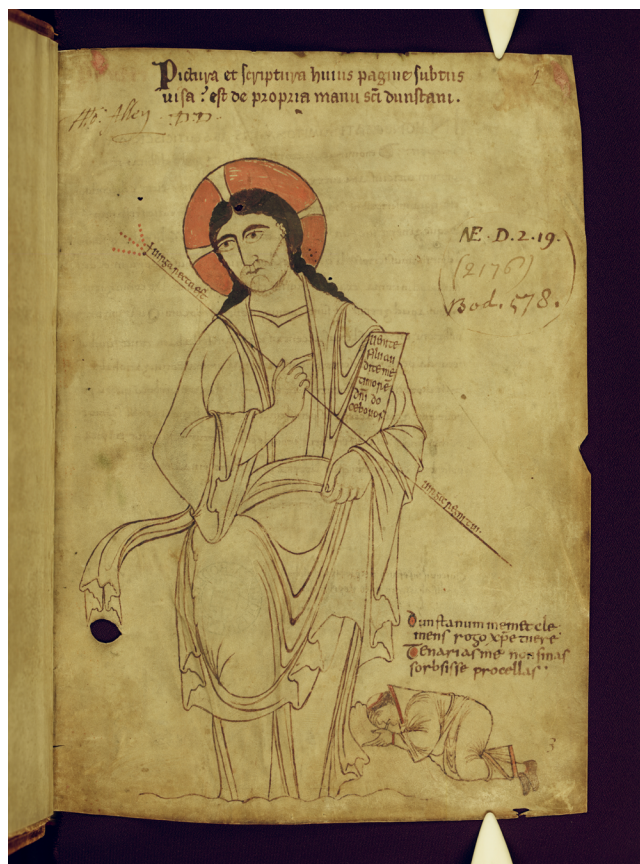 Pictura et scriptura huius pagine subtus
uisa: est de propria manu sc̄i dunstani.
Tho. Allen DD.
1
NE. D. 2. 19.
(2176)
Bod. 578.
uirga recta est
uenite
filii au
dite me
timorē
dn̄i do
cebo uos
uirga regni tui
Dunstanum memet cle
mens rogo xp̄e tuere
Tenarias me non sinas
sorbsisse procellas
3